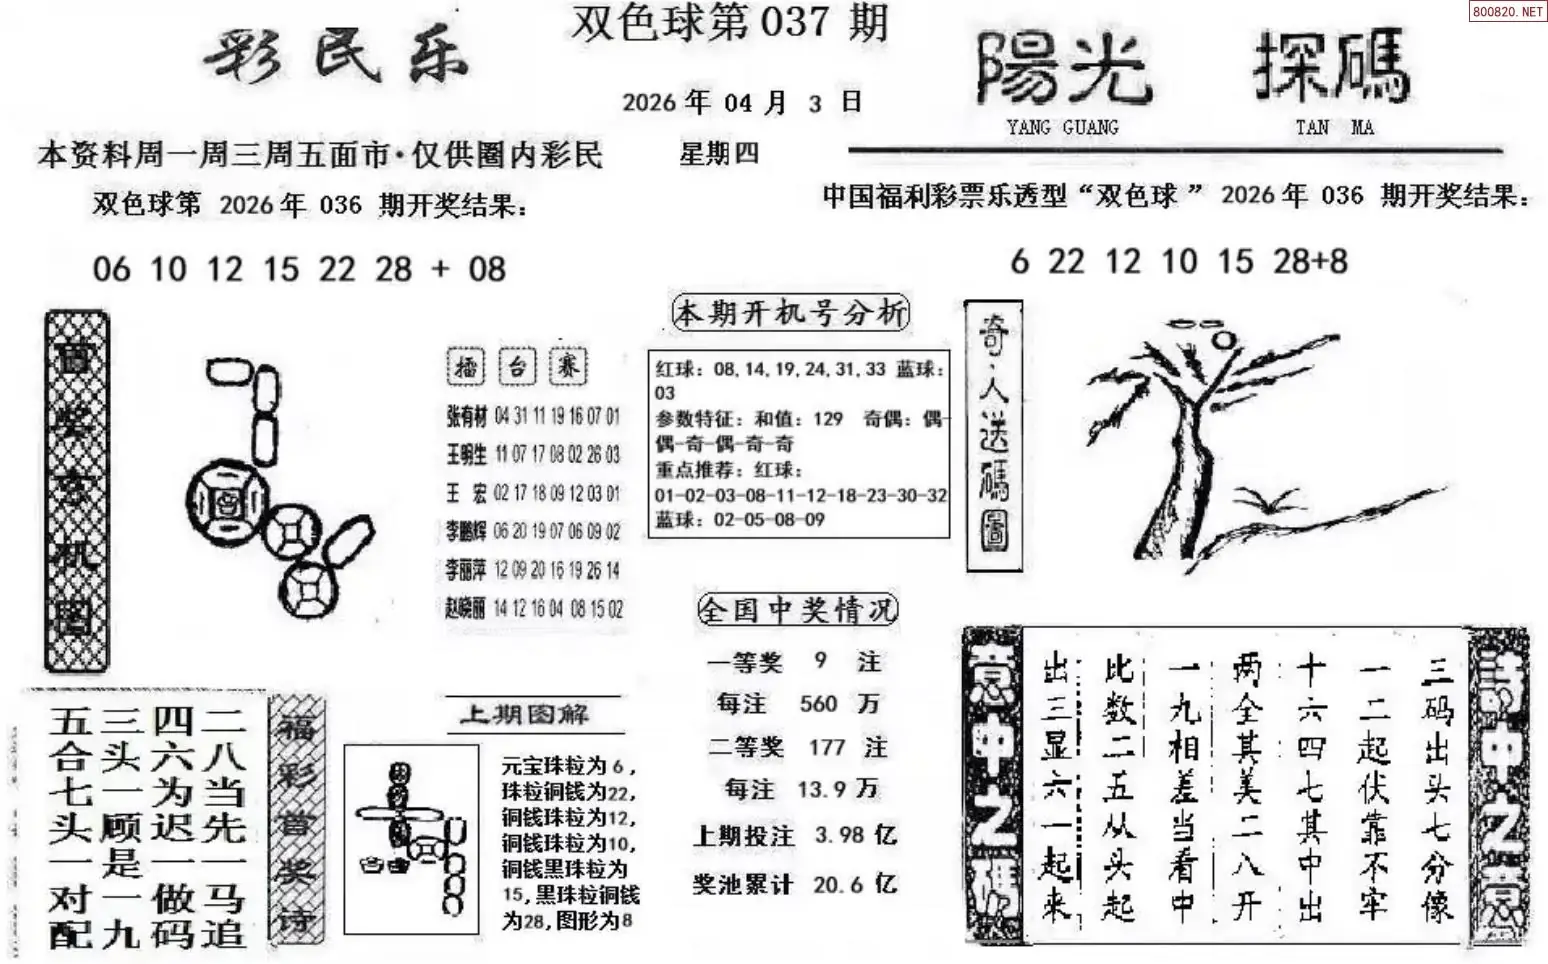 800820.NET
彩民乐
双色球第037期
2026年04月3日
星期四
陽光 探碼
YANG GUANG TAN MA
本资料周一周三周五面市·仅供圈内彩民
双色球第 2026年 036 期开奖结果:
06 10 12 15 22 28 + 08
中国福利彩票乐透型“双色球”2026年 036 期开奖结果:
6 22 12 10 15 28+8
擂台赛
张有材 04 31 11 19 16 07 01
王明生 11 07 17 08 02 26 03
王 宏 02 17 18 09 12 03 01
李鹏辉 06 20 19 07 06 09 02
李丽萍 12 09 20 16 19 26 14
赵晓丽 14 12 16 04 08 15 02
本期开机号分析
红球: 08,14,19,24,31,33 蓝球:
03
参数特征: 和值: 129 奇偶: 偶-
偶-奇-偶-奇-奇
重点推荐: 红球:
01-02-03-08-11-12-18-23-30-32
蓝球: 02-05-08-09
奇·人送碼圖
全国中奖情况
一等奖 9 注
每注 560 万
二等奖 177 注
每注 13.9 万
上期投注 3.98 亿
奖池累计 20.6 亿
福彩當奖诗
二八当先一马追
四六为迟一做码
三头一顾是一九
五合七头一对配
上期图解
元宝珠粒为6,
珠粒铜钱为22,
铜钱珠粒为12,
铜钱珠粒为10,
铜钱黑珠粒为
15,黑珠粒铜钱
为28,图形为8
詩中之意
三码出头七分像
一二起伏靠不牢
十六四七其中出
两全其美二八开
一九相差当看中
比数二五从头起
出三显六一起来
意中之